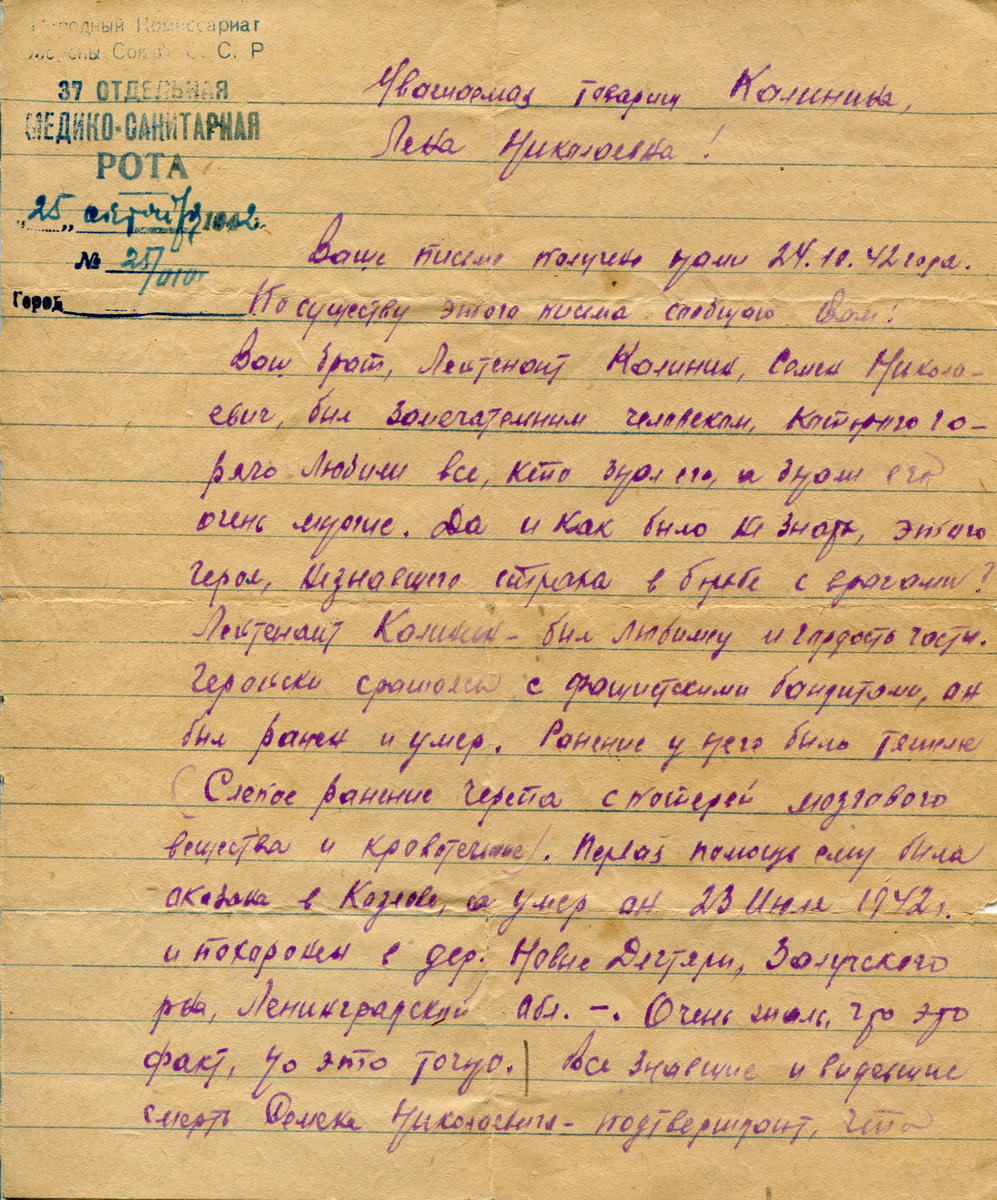 Народный Комиссариат
Обороны Союза С. С. Р
37 ОТДЕЛЬНАЯ
МЕДИКО-САНИТАРНАЯ
РОТА
„25„ октября 1942
№ 25/
Город
Уважаемая товарищ Калинина,
Лена Николаевна!
Ваше письмо получено нами 24.10.42 года.
По существу этого писма сообщаю Вам:
Ваш брат, Лейтенант Калинин, Семен Никола-
евич, был замечательним человеком, которого го-
рячо любили все, кто знал его, а знали его
очень многие. Да и как было не знать, этого
героя, незнавшего страха в борьбе с врагами?
Лейтенант Калинин – был любимец и гордость части.
Геройски сражаясь с фашистскими бандитами, он
был ранен и умер. Ранение у него было тяжелое
(Слепое ранение черепа с потерей мозгового
вещества и кровотечение). Первая помощь ему била
оказана в Козлове, а умер он 23 Июля 1942 г.
и похоронен в дер. Новые Дегтяри, Залучского
р-на, Ленинградский обл. –. Очень жаль, что это
факт, но это точно. Все знавшие и видевшие
смерть Семена Николаевича – подтверждают, что